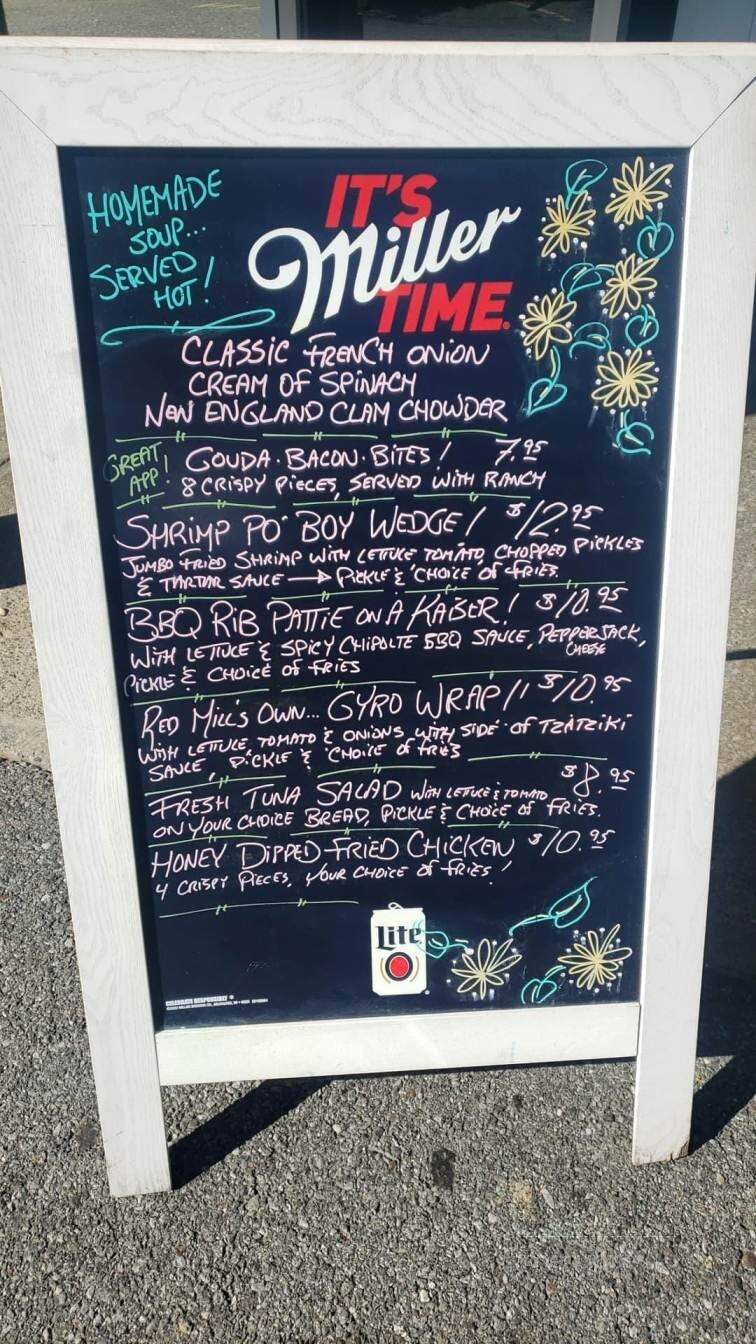 HOMEMADE
SOUP...
SERVED
HOT!
IT'S
Miller
TIME.
CLASSIC FRENCH ONION
CREAM OF SPINACH
NEW ENGLAND CLAM CHOWDER
GREAT
APP!
GOUDA · BACON · BITES! 7.95
8 CRISPY PIECES, SERVED WITH RANCH
SHRIMP PO' BOY WEDGE! $12.95
JUMBO FRIED SHRIMP WITH LETTUCE TOMATO, CHOPPED PICKLES
& TARTAR SAUCE → PICKLE & CHOICE OF FRIES.
BBQ RIB PATTIE ON A KAISER! $10.95
WITH LETTUCE & SPICY CHIPOLTE BBQ SAUCE, PEPPERJACK,
CHEESE
PICKLE & CHOICE OF FRIES
RED MILL'S OWN... GYRO WRAP!! $10.95
WITH LETTUCE, TOMATO & ONIONS, WITH SIDE OF TZATZIKI
SAUCE, PICKLE & CHOICE OF FRIES
FRESH TUNA SALAD WITH LETTUCE & TOMATO $8.95
ON YOUR CHOICE BREAD, PICKLE & CHOICE OF FRIES.
HONEY DIPPED FRIED CHICKEN $10.95
4 CRISPY PIECES, YOUR CHOICE OF FRIES!
Lite
CELEBRATE RESPONSIBLY